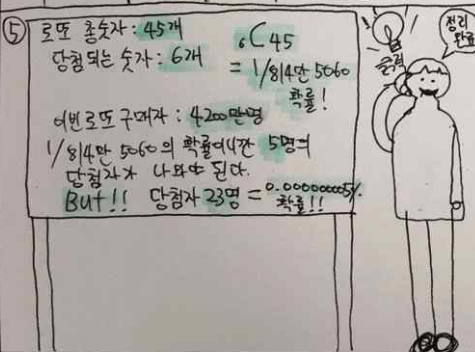 ⑤ 로또 총숫자 : 45개
당첨되는 숫자 : 6개
₆C45
= 1/814만 5060
확률!
이번로또 구매자 : 4200만명
1/814만 5060의 확률이니깐 5명의
당첨자가 나와야 된다.
But!! 당첨자 23명 = 0.000000005%
확률!!
정리
완료